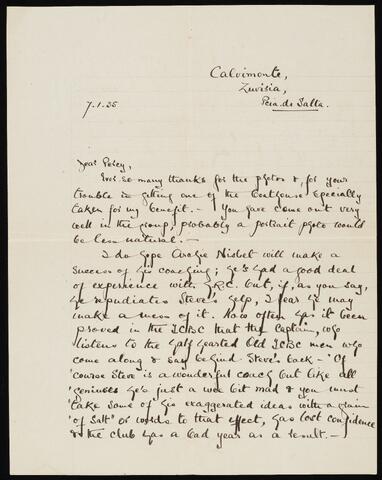 Calvimonte,
Zuviria,
Pcia. de Salta.
7.1.35
Dear Percy,
Ever so many thanks for the photos & for your
trouble in getting one of the Boathouse specially
taken for my benefit. - You have come out very
well in the group, probably a portrait photo would
be less natural. -
I do hope Archie Nisbet will make a
success of his coaching; he's had a good deal
of experience with but, if, as you say,
he repudiates Steve's help, I fear he may
make a mess of it. How often has it been
proved in the TCBC that the Captain, who
listens to the half hearted Old TCBC men who
come along & say behind Steve's back - "Of
course Steve is a wonderful coach but like all
geniuses he's just a wee bit mad & you must
"take some of his exaggerated ideas with a grain
"of salt" or words to that effect, has lost confidence
& the club has a bad year as a result. -